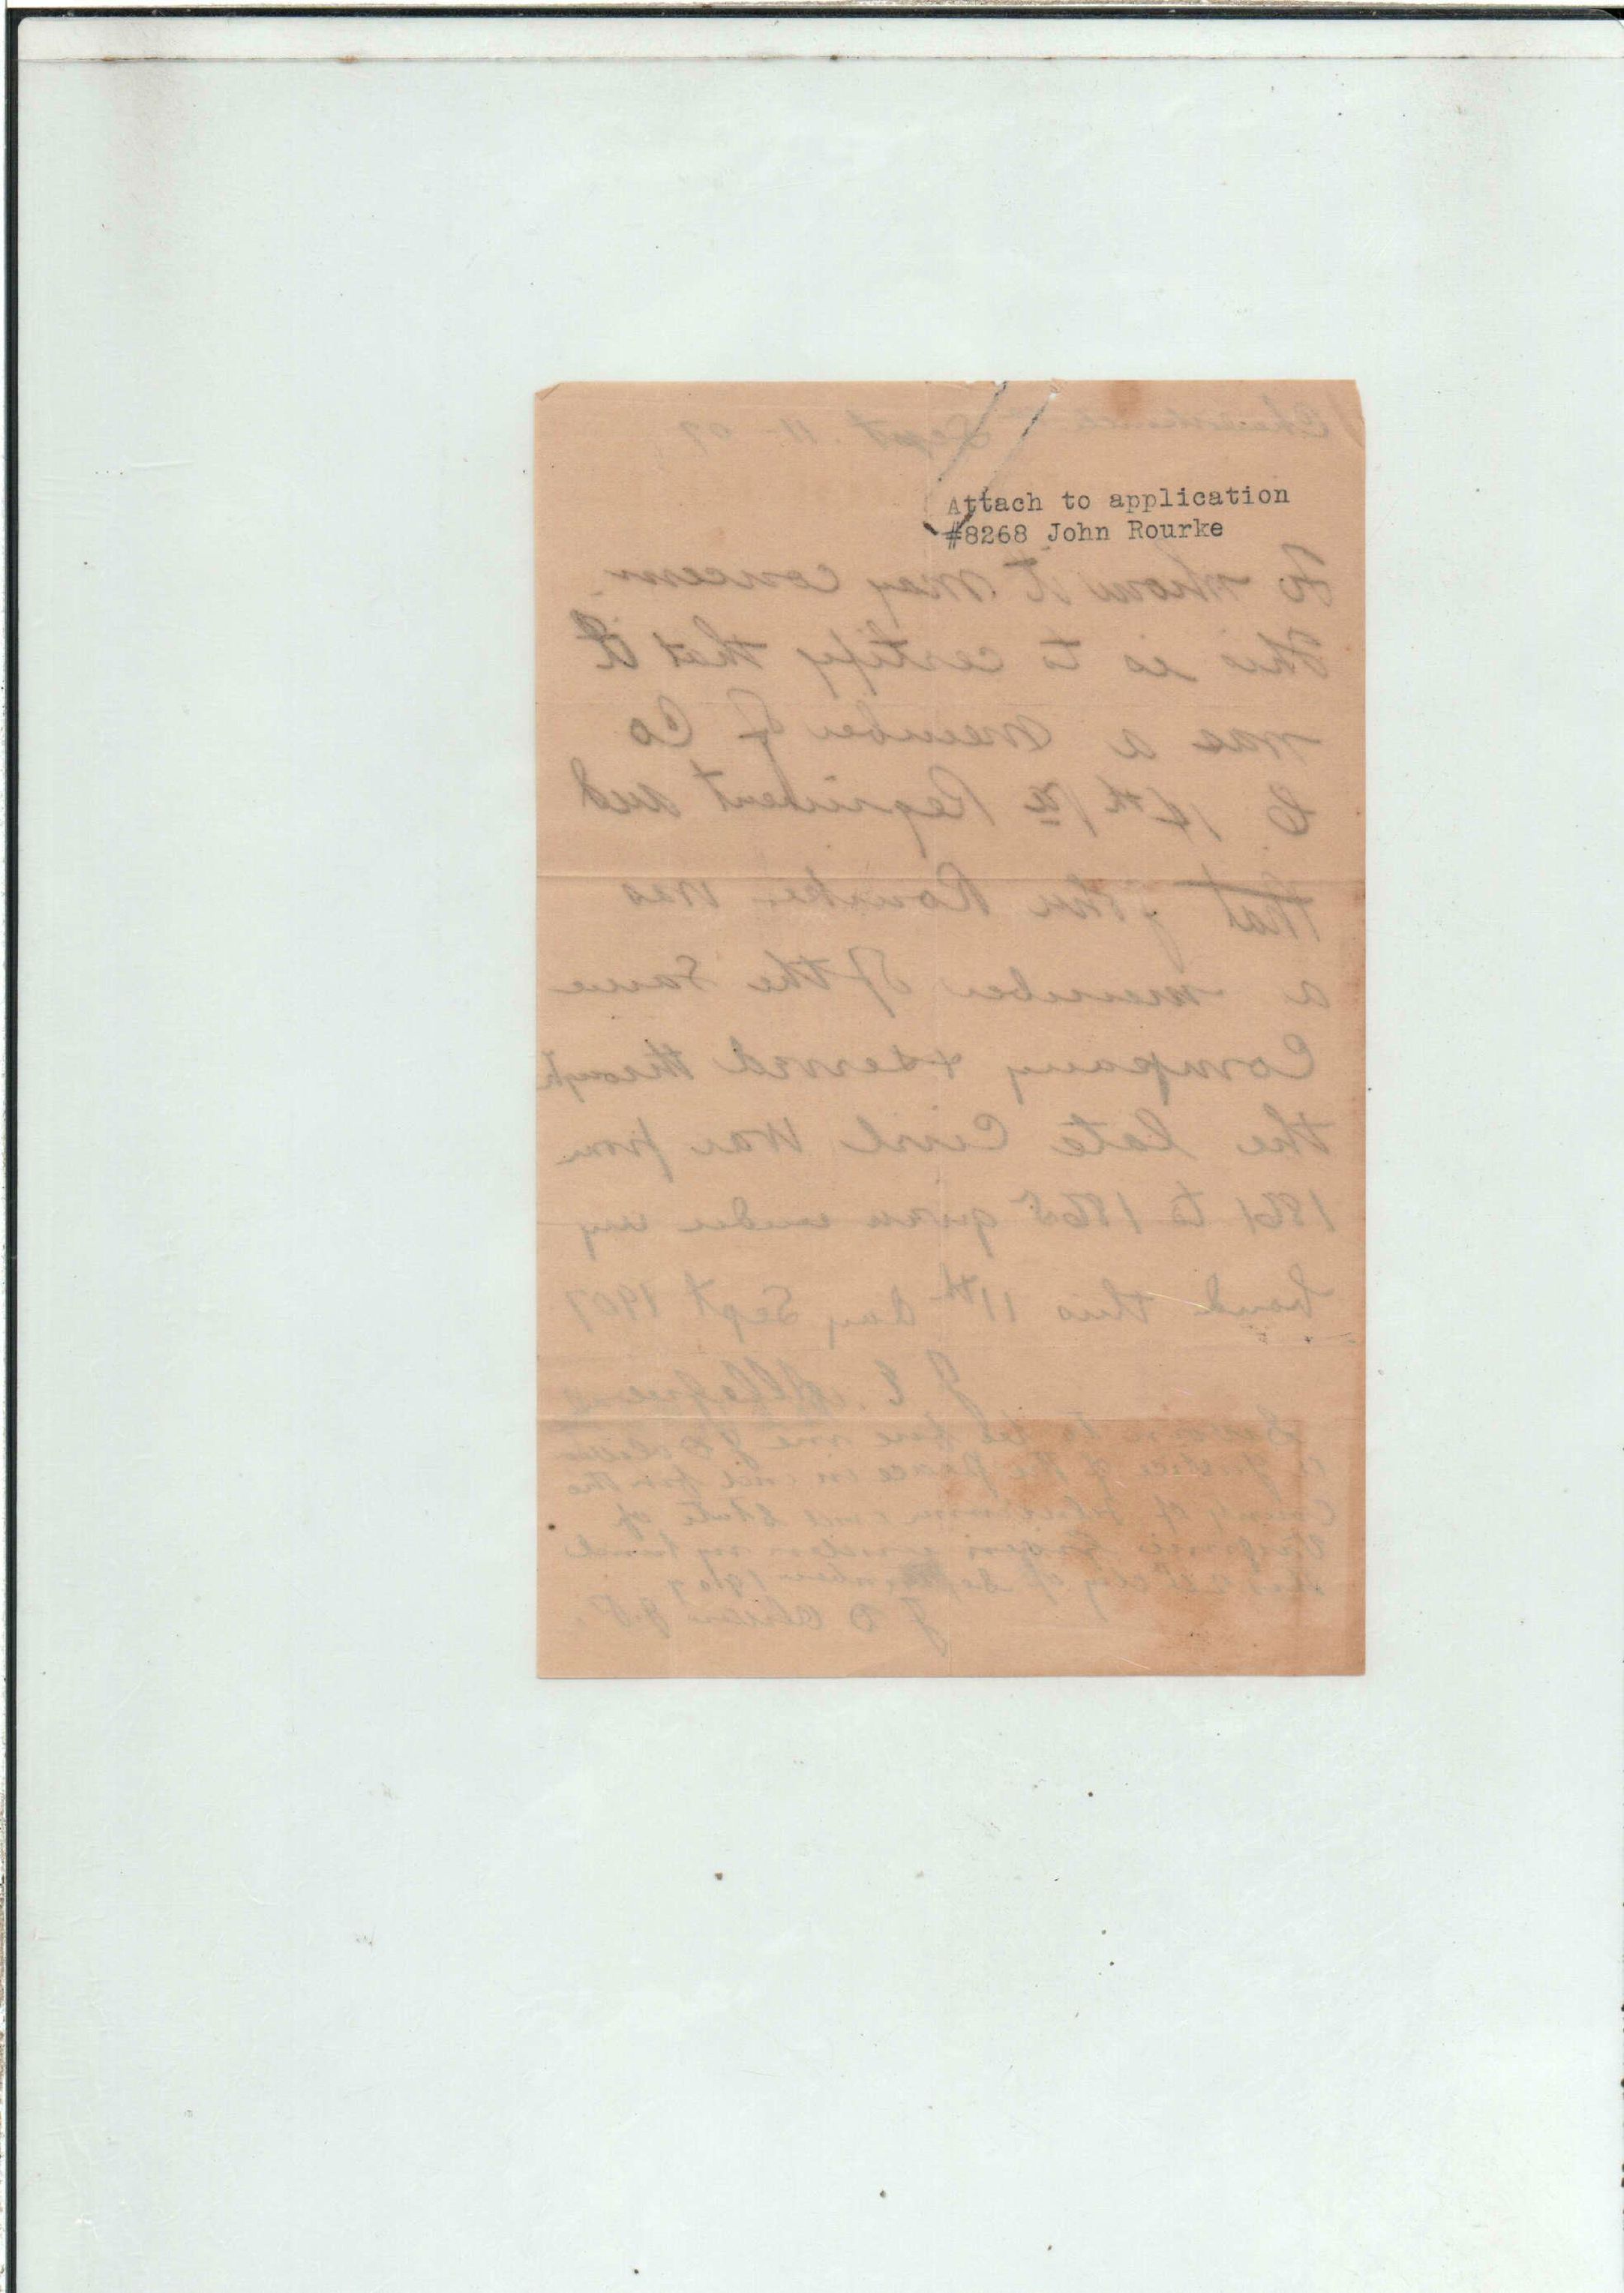 Sept. 11 - 07
Attach to application
#8268 John Rourke
To whom it may concern
this is to certify that I
was a member of Co
14th Va Regiment and
that John Rourke was
a member of the Same
Company & served through
the late Civil War from
1861 to 1865 given under my
hand this 11th day Sept 1907
Sworn to before me J D
a Justice of the peace in and for the
County of and State of
Virginia Given under my hand
this day of September 1907
J D J.P.